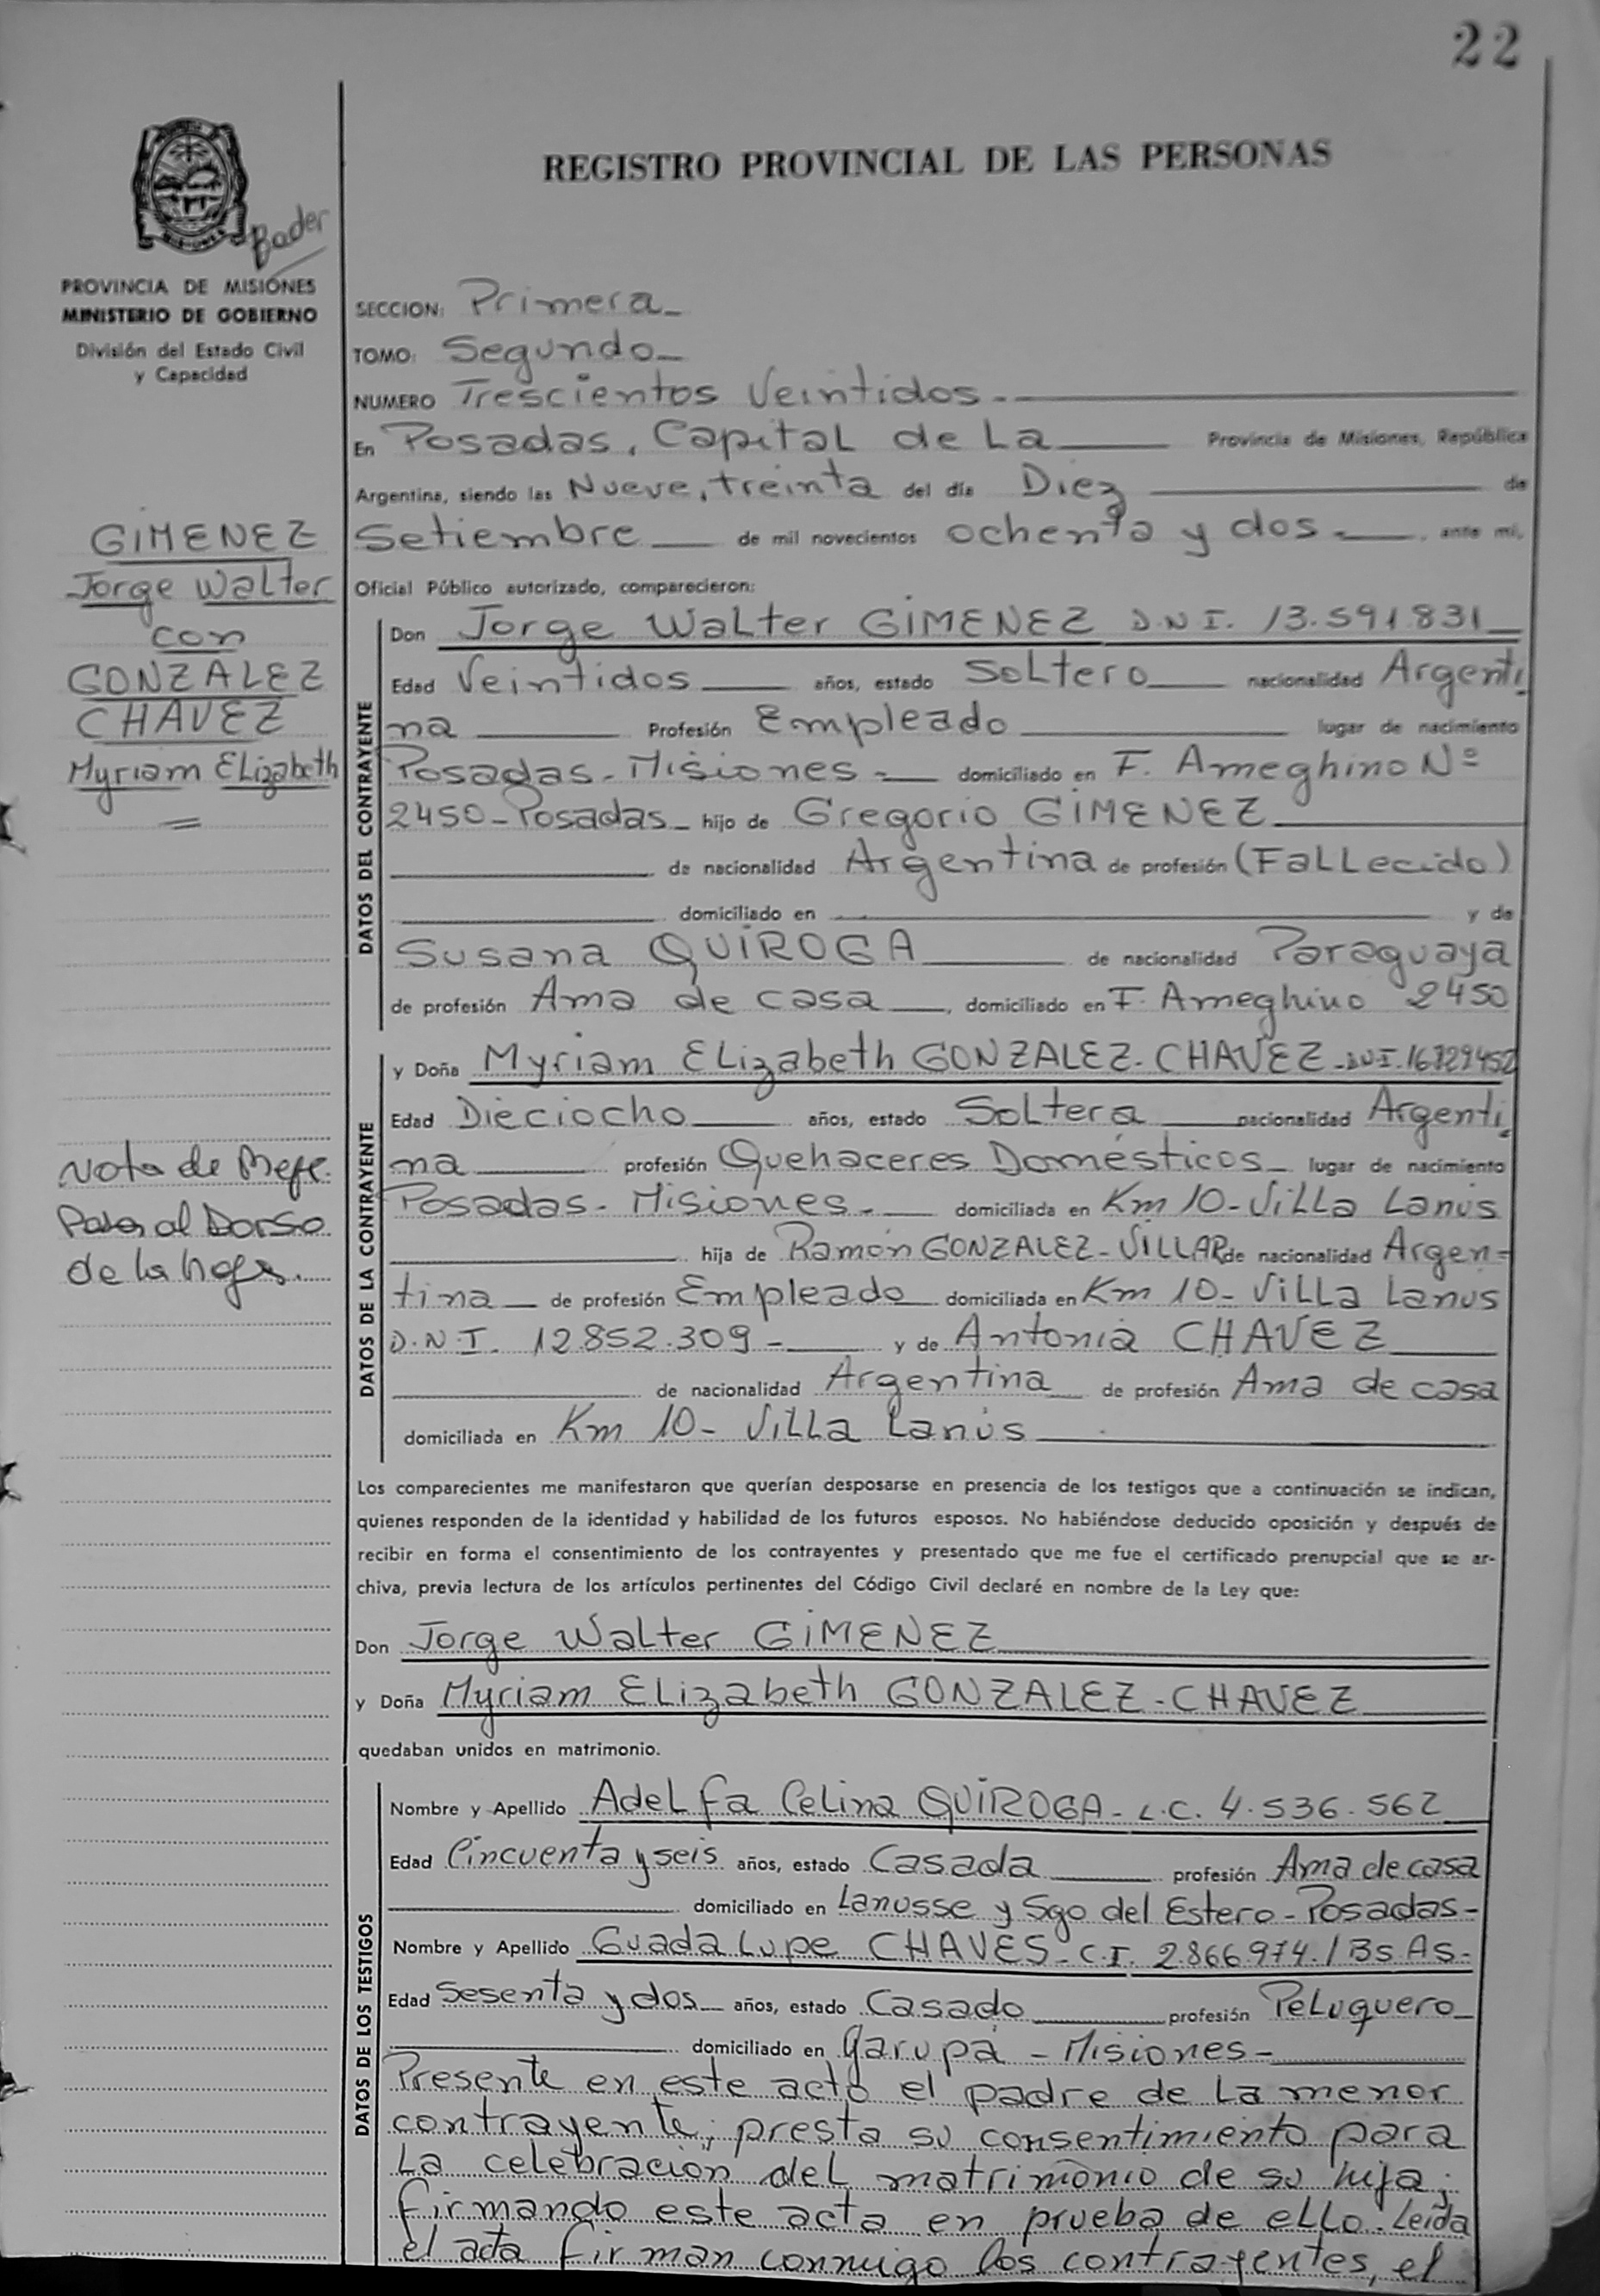 22
REGISTRO PROVINCIAL DE LAS PERSONAS
MISIONES
Bader
PROVINCIA DE MISIONES
MINISTERIO DE GOBIERNO
División del Estado Civil
y Capacidad
GIMENEZ
Jorge Walter
con
GONZALEZ
CHAVEZ
Myriam Elizabeth
Nota de Refe.
al Dorso
de la hoja.
SECCION: Primera
TOMO: Segundo
NUMERO Trescientos Veintidos
En Posadas, Capital de La Provincia de Misiones, República
Argentina, siendo las Nueve, treinta del día Diez de
Setiembre de mil novecientos ochenta y dos, ante mi,
Oficial Público autorizado, comparecieron:
DATOS DEL CONTRAYENTE
Don Jorge Walter GIMENEZ D.N.I. 13.591.831
Edad Veintidos años, estado Soltero nacionalidad Argenti
na Profesión Empleado lugar de nacimiento
Posadas-Misiones- domiciliado en F. Ameghino Nº
2450-Posadas- hijo de Gregorio GIMENEZ
de nacionalidad Argentina de profesión (Fallecido)
domiciliado en y de
Susana QUIROGA de nacionalidad Paraguaya
de profesión Ama de casa, domiciliado en F. Ameghino 2450
DATOS DE LA CONTRAYENTE
y Doña Myriam Elizabeth GONZALEZ-CHAVEZ-D.N.I.
Edad Dieciocho años, estado Soltera nacionalidad Argenti
na profesión Quehaceres Domésticos- lugar de nacimiento
Posadas-Misiones- domiciliada en Km 10-Villa Lanús
hija de Ramón GONZALEZ-VILLAR de nacionalidad Argen-
tina de profesión Empleado domiciliada en Km 10-Villa Lanus
D.N.I. 12.852.309- y de Antonia CHAVEZ
de nacionalidad Argentina de profesión Ama de casa
domiciliada en Km 10-Villa Lanús
Los comparecientes me manifestaron que querían desposarse en presencia de los testigos que a continuación se indican,
quienes responden de la identidad y habilidad de los futuros esposos. No habiéndose deducido oposición y después de
recibir en forma el consentimiento de los contrayentes y presentado que me fue el certificado prenupcial que se ar-
chiva, previa lectura de los artículos pertinentes del Código Civil declaré en nombre de la Ley que:
Don Jorge Walter GIMENEZ
y Doña Myriam Elizabeth GONZALEZ-CHAVEZ
quedaban unidos en matrimonio.
DATOS DE LOS TESTIGOS
Nombre y Apellido Adelfa Celina QUIROGA-L.C. 4.536.562
Edad Cincuenta y seis años, estado Casada profesión Ama de casa
domiciliado en Lanusse y Sgo del Estero-Posadas-
Nombre y Apellido Guadalupe CHAVES-C.I. 2.866.974./Bs.As.-
Edad Sesenta y dos años, estado Casado profesión Peluquero
domiciliado en Garupá-Misiones-
Presente en este acto el padre de La menor
contrayente, presta su consentimiento para
La celebración del matrimonio de su hija;
firmando este acta en prueba de ello. Leída
el acta firman conmigo los contrayentes, el